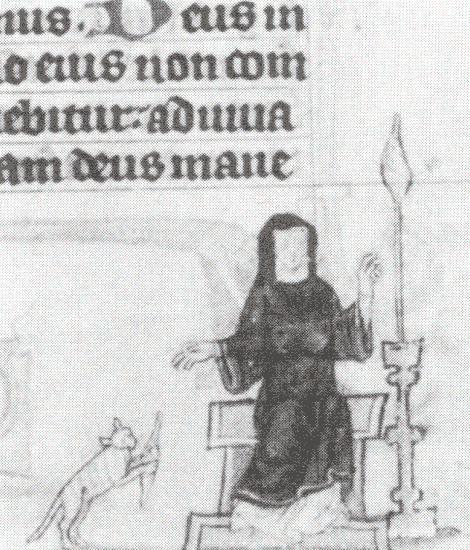 mus. Deus in
o eius non com
ebitur: adiuua
am deus mane